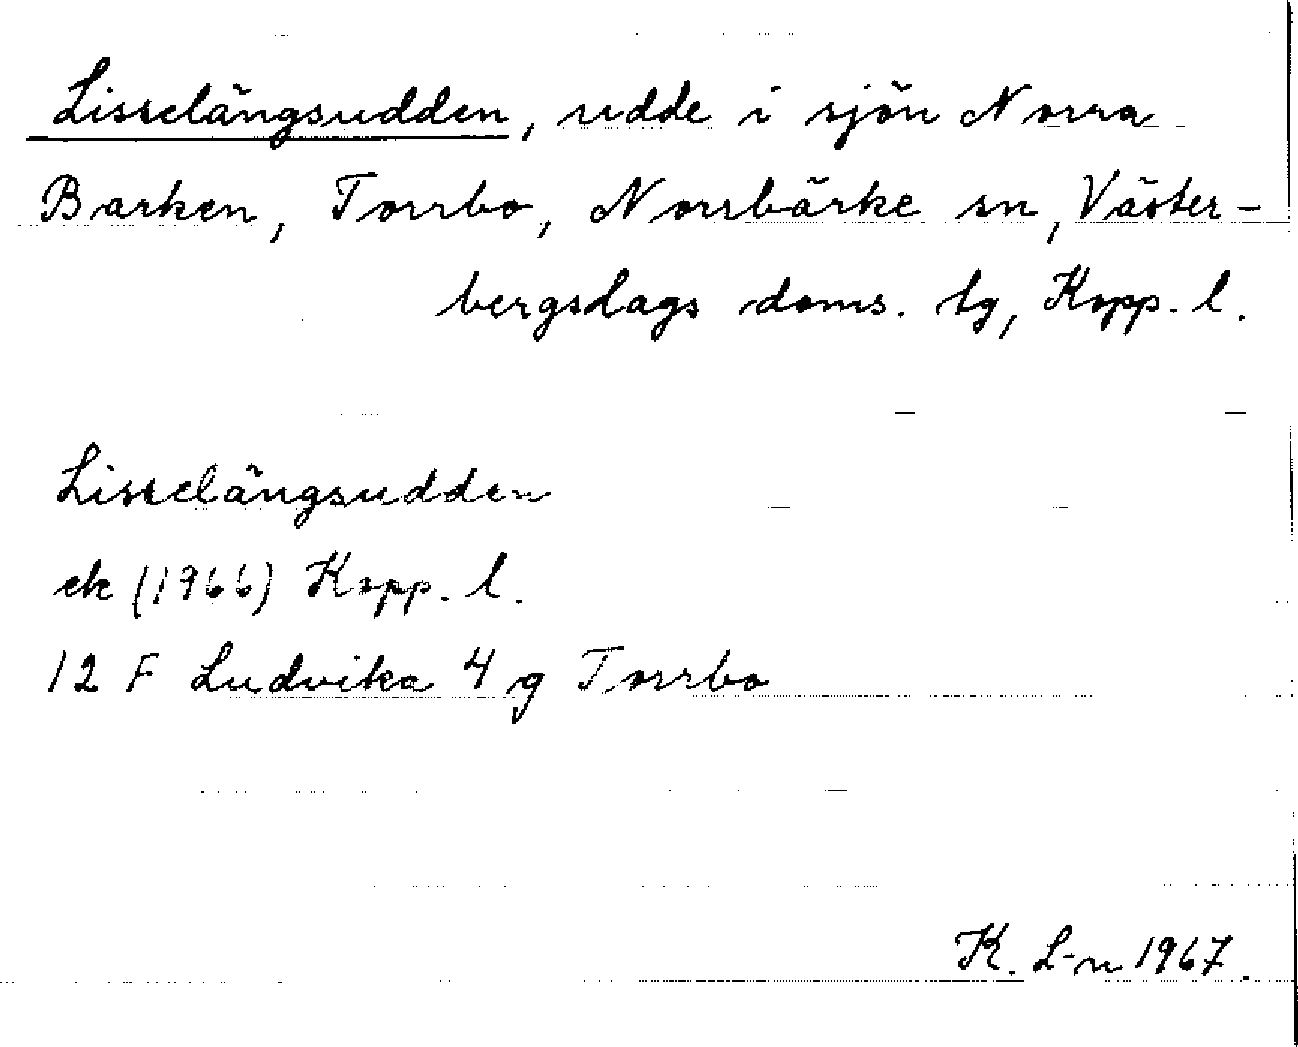 Lisselängsudden, udde i sjön Norra
Barken, Torrbo, Norrbärke sn, Väster-
bergslags doms. tg, Kopp. l.
Lisselängsudden
ek (1966) Kopp. l.
12 F Ludvika 4 g Torrbo
K. L-n 1967.